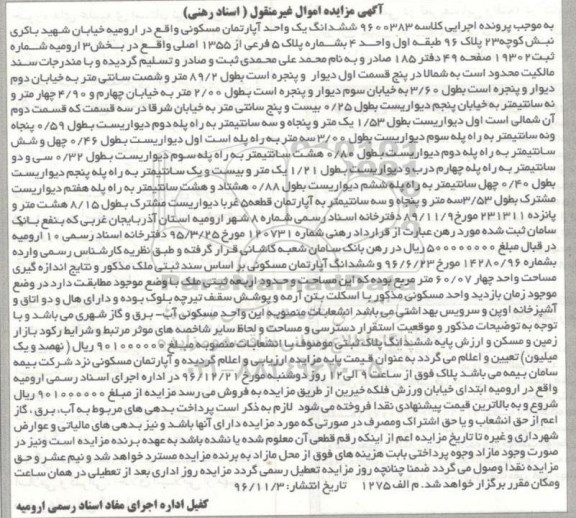 آگهی مزایده اموال غیرمنقول ( اسناد رهنی)
به موجب پرونده اجرایی کلاسه ۹۶۰۰۳۸۳ ششدانگ یک واحد آپارتمان مسکونی واقع در ارومیه خیابان شهید باکری
نبش کوچه۲۳ پلاک ۹۶ طبقه اول واحد ۴ بشماره پلاک ۵ فرعی از ۱۳۵۵ اصلی واقع در بخش۳ ارومیه شماره
ثبت۱۹۳۰۲ صفحه ۴۹ دفتر ۱۸۵ صادر و به نام محمد علی محمدی ثبت و صادر و تسلیم گردیده و با مندرجات سند
مالکیت محدود است به شمالا در پنج قسمت اول دیوار و پنجره است بطول ۸/۶۲ متر و شصت سانتی متر به خیابان دوم
دیوار و پنجره است بطول ۳/۶۰ به خیابان سوم دیوار و پنجره است بطول ۲/۰۰ متر به خیابان چهارم و ۴/۹۰ چهار متر و
نه سانتیمتر به خیابان پنجم دیواریست بطول ۰/۲۵ بیست و پنج سانتی متر به خیابان شرقا در سه قسمت که قسمت دوم
آن شمالی است اول دیواریست بطول ۱/۵۳ یک متر و پنجاه و سه سانتیمتر به راه پله دوم دیواریست بطول ۰/۵۹ پنجاه
ونه سانتیمتر به راه پله سوم دیواریست بطول ۳/۰۰ سه متر به راه پله است اول دیواریست بطول ۰/۴۶ چهل و شش
سانتیمتر به راه پله دوم دیواریست بطول ۰/۸۰ هشت سانتیمتر به راه پله سوم دیواریست بطول ۰/۳۲ سی و دو
سانتیمتر به راه پله چهارم درب و دیواریست بطول ۱/۲۱ یک متر و بیست و یک سانتیمتر به راه پله پنجم دیواریست
بطول ۰/۴۰ چهل سانتیمتر به راه پله ششم دیواریست بطول ۰/۸۸ هشتاد و هشت سانتیمتر به راه پله هفتم دیواریست
مشترک بطول ۳/۵۳سه متر و پنجاه و سه سانتیمتر به آپارتمان قطعه۵ غربا دیواریست مشترک بطول ۸/۱۵ هشت متر و
پانزده ۲۳۱۳۱۱ مورخ ۸۹/۱۱/۹ دفترخانه اسناد رسمی شماره ۸ شهر ارومیه استان آذربایجان غربی که بنفع بانک
سامان ثبت شده مورد رهن عبارت از قرارداد رهنی شماره ۱۲۰۷۳۱ مورخ ۹۵/۳/۲۵ دفترخانه اسناد رسمی ۱۰ ارومیه
در قبال مبلغ ۵۰۰۰۰۰۰۰۰ ریال در رهن بانک سامان شعبه کاشانی قرار گرفته و طبق نظریه کارشناس رسمی وارده
بشماره ۱۴۲۸۰/۹۶ مورخ ۹۶/۶/۲۳ و ششدانگ آپارتمان مسکونی بر اساس سند ثبتی ملک مذکور و نتایج اندازه گیری
مساحت واحد چهار ۶۰/۰۷ متر مربع بوده که این مساحت و حدود اربعه ثبتی ملک با وضع موجود مطابقت دارد در وضع
موجود زمان بازدید واحد مسکونی مذکور با اسکلت بتن آرمه و پوشش سقف تیرچه بلوک بوده و دارای هال و دو اتاق و
آشپزخانه اوپن و سرویس بهداشتی می باشد انشعابات منصوبه این واحد مسکونی آب – برق و گاز شهری می باشد و با
توجه به توضیحات مذکور و موقعیت استقرار دسترسی و مساحت و لحاظ سایر شاخصه های موثر مرتبط و شرایط رکود بازار
زمین و مسکن و ارزش پایه ششدانگ پلاک ثبتی موصوف با انشعابات منصوبه مبلغ ۹۰۱۰۰۰۰۰۰ ریال ( نهصد و یک
میلیون) تعیین و اعلام می گردد به عنوان قیمت پایه مزایده ارزیابی و اعلام گردیده و آپارتمان مسکونی نزد شرکت بیمه
سامان بیمه می باشد پلاک فوق از ساعت ۹ الی۱۲ روز دوشنبه مورخ ۹۶/۱۲/۲۱ در اداره اجرای اسناد رسمی ارومیه
واقع در ارومیه ابتدای خیابان ورزش فلکه خیرین از طریق مزایده به فروش می رسد مزایده از مبلغ ۹۰۱۰۰۰۰۰۰ ریال
شروع و به بالاترین قیمت پیشنهادی نقدا فروخته می شود لازم به ذکر است پرداخت بدهی های مربوط به آب، برق ، گاز
اعم از حق انشعاب و یا حق اشتراک ومصرف در صورتی که مورد مزایده دارای آنها باشد و نیز بدهی های مالیاتی و عوارض
شهرداری و غیره تا تاریخ مزایده اعم از اینکه رقم قطعی آن معلوم شده یا نشده باشد به عهده برنده مزایده است ونیز در
صورت وجود مازاد وجوه پرداختی بابت هزینه های فوق از محل مازاد به برنده مزایده مسترد خواهد شد و نیم عشر و حق
مزایده نقدا وصول می گردد ضمنا چنانچه روز مزایده تعطیل رسمی گردد مزایده روز اداری بعد از تعطیلی در همان ساعت
ومکان مقرر برگزار خواهد شد. م الف ۱۲۷۵ تاریخ انتشار: ۹۶/۱۱/۳
کفیل اداره اجرای مفاد اسناد رسمی ارومیه